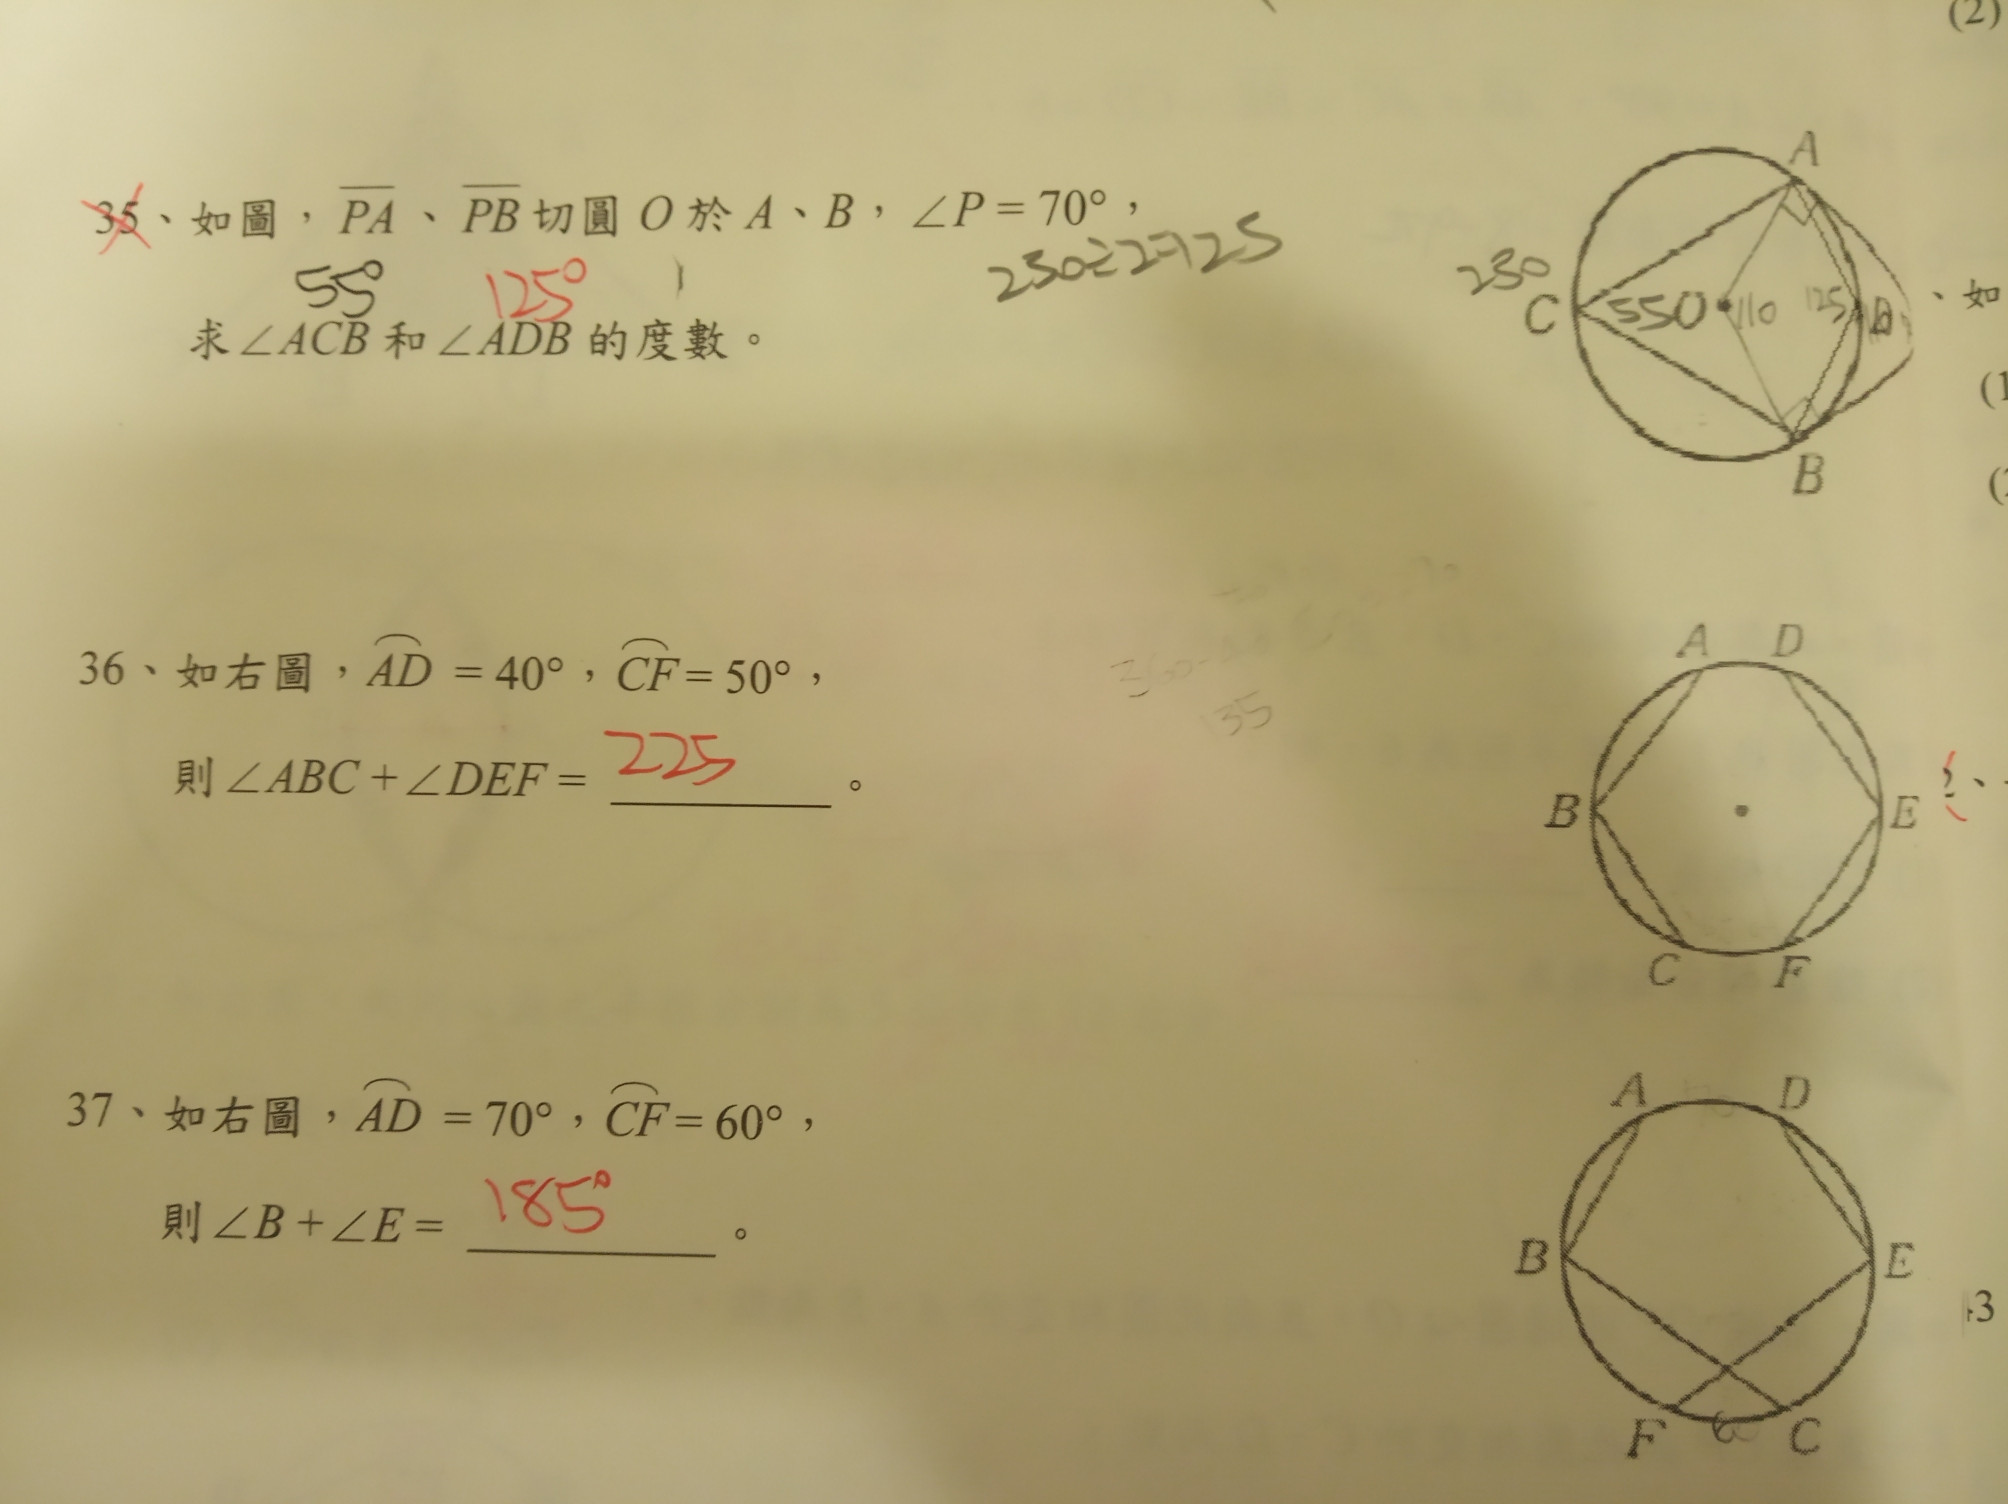 (2)
35、如圖，PA、PB切圓 O 於 A、B，∠P = 70°，
55° 125°
230÷2=125
求∠ACB 和∠ADB 的度數。
A
230
C 55 O 110 125 D
B
、如
(1
(2
36、如右圖，AD = 40°，CF = 50°，
則∠ABC + ∠DEF = 225。
135
A D
B E
C F
37、如右圖，AD = 70°，CF = 60°，
則∠B + ∠E = 185°。
A D
B E
F 60 C
43